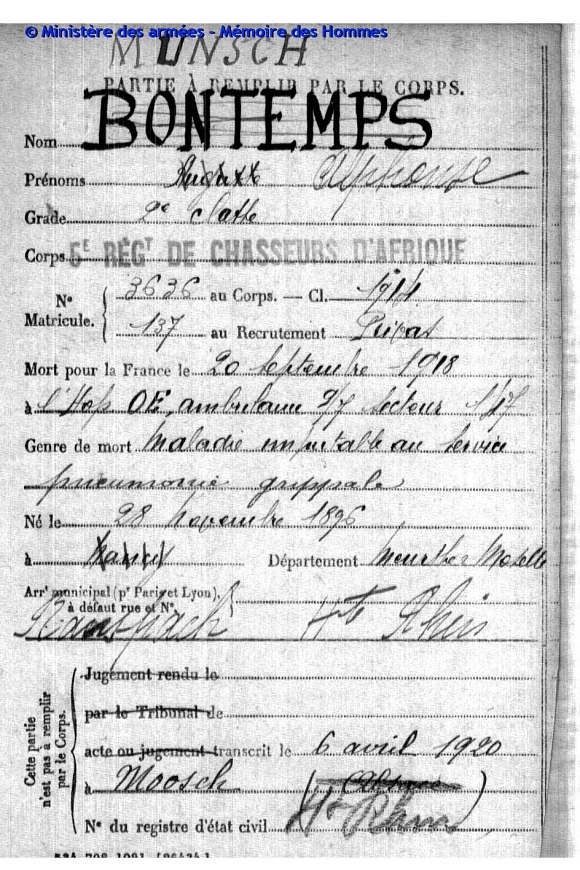 © Ministère des armées - Mémoire des Hommes
MUNSCH
PARTIE À REMPLIR PAR LE CORPS.
Nom BONTEMPS
Prénoms Alphonse
Grade 2e classe
Corps 5E RÉGT DE CHASSEURS D'AFRIQUE
N° Matricule.
3636 au Corps. — Cl. 1914
137 au Recrutement
Mort pour la France le 20 Septembre 1918
à l'Hop OE, ambulance 9/7 Secteur 147
Genre de mort Maladie imputable au service
pneumonie grippale
Né le 28 novembre 1896
à Nancy Département Meurthe Moselle
Arrt municipal (pr Paris et Lyon),
à défaut rue et N°.
Hte Rhin
Cette partie n'est pas à remplir par le Corps.
Jugement rendu le
par le Tribunal de
acte ou jugement transcrit le 6 avril 1920
à Moosch (Alsace)
Ht Rhin
N° du registre d'état civil